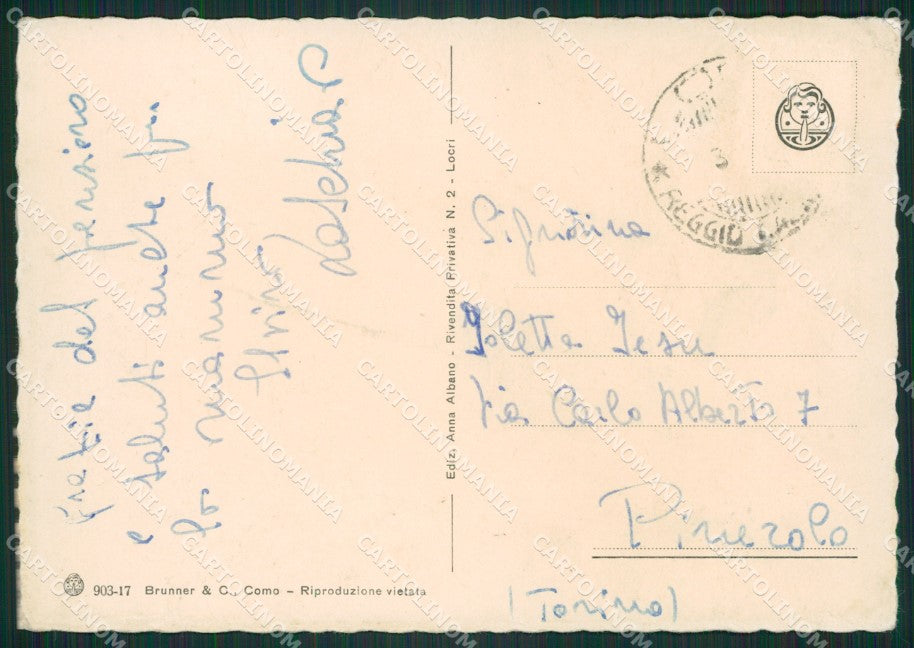 grazie del pensiero
e saluti anche per
la mamma
Silvio
Signorina
Joletta Jesu
Via Carlo Alberto 7
Pinerolo
(Torino)
Ediz. Anna Albano - Rivendita Privativa N. 2 - Locri
903-17 Brunner & C., Como – Riproduzione vietata
3
* REGGIO CAL
CARTOLINOMANIA